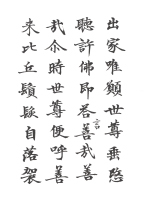 出家唯願世尊垂愍
聽許佛即答言善哉善
哉尒時世尊便呼善
来比丘鬚髮自落袈